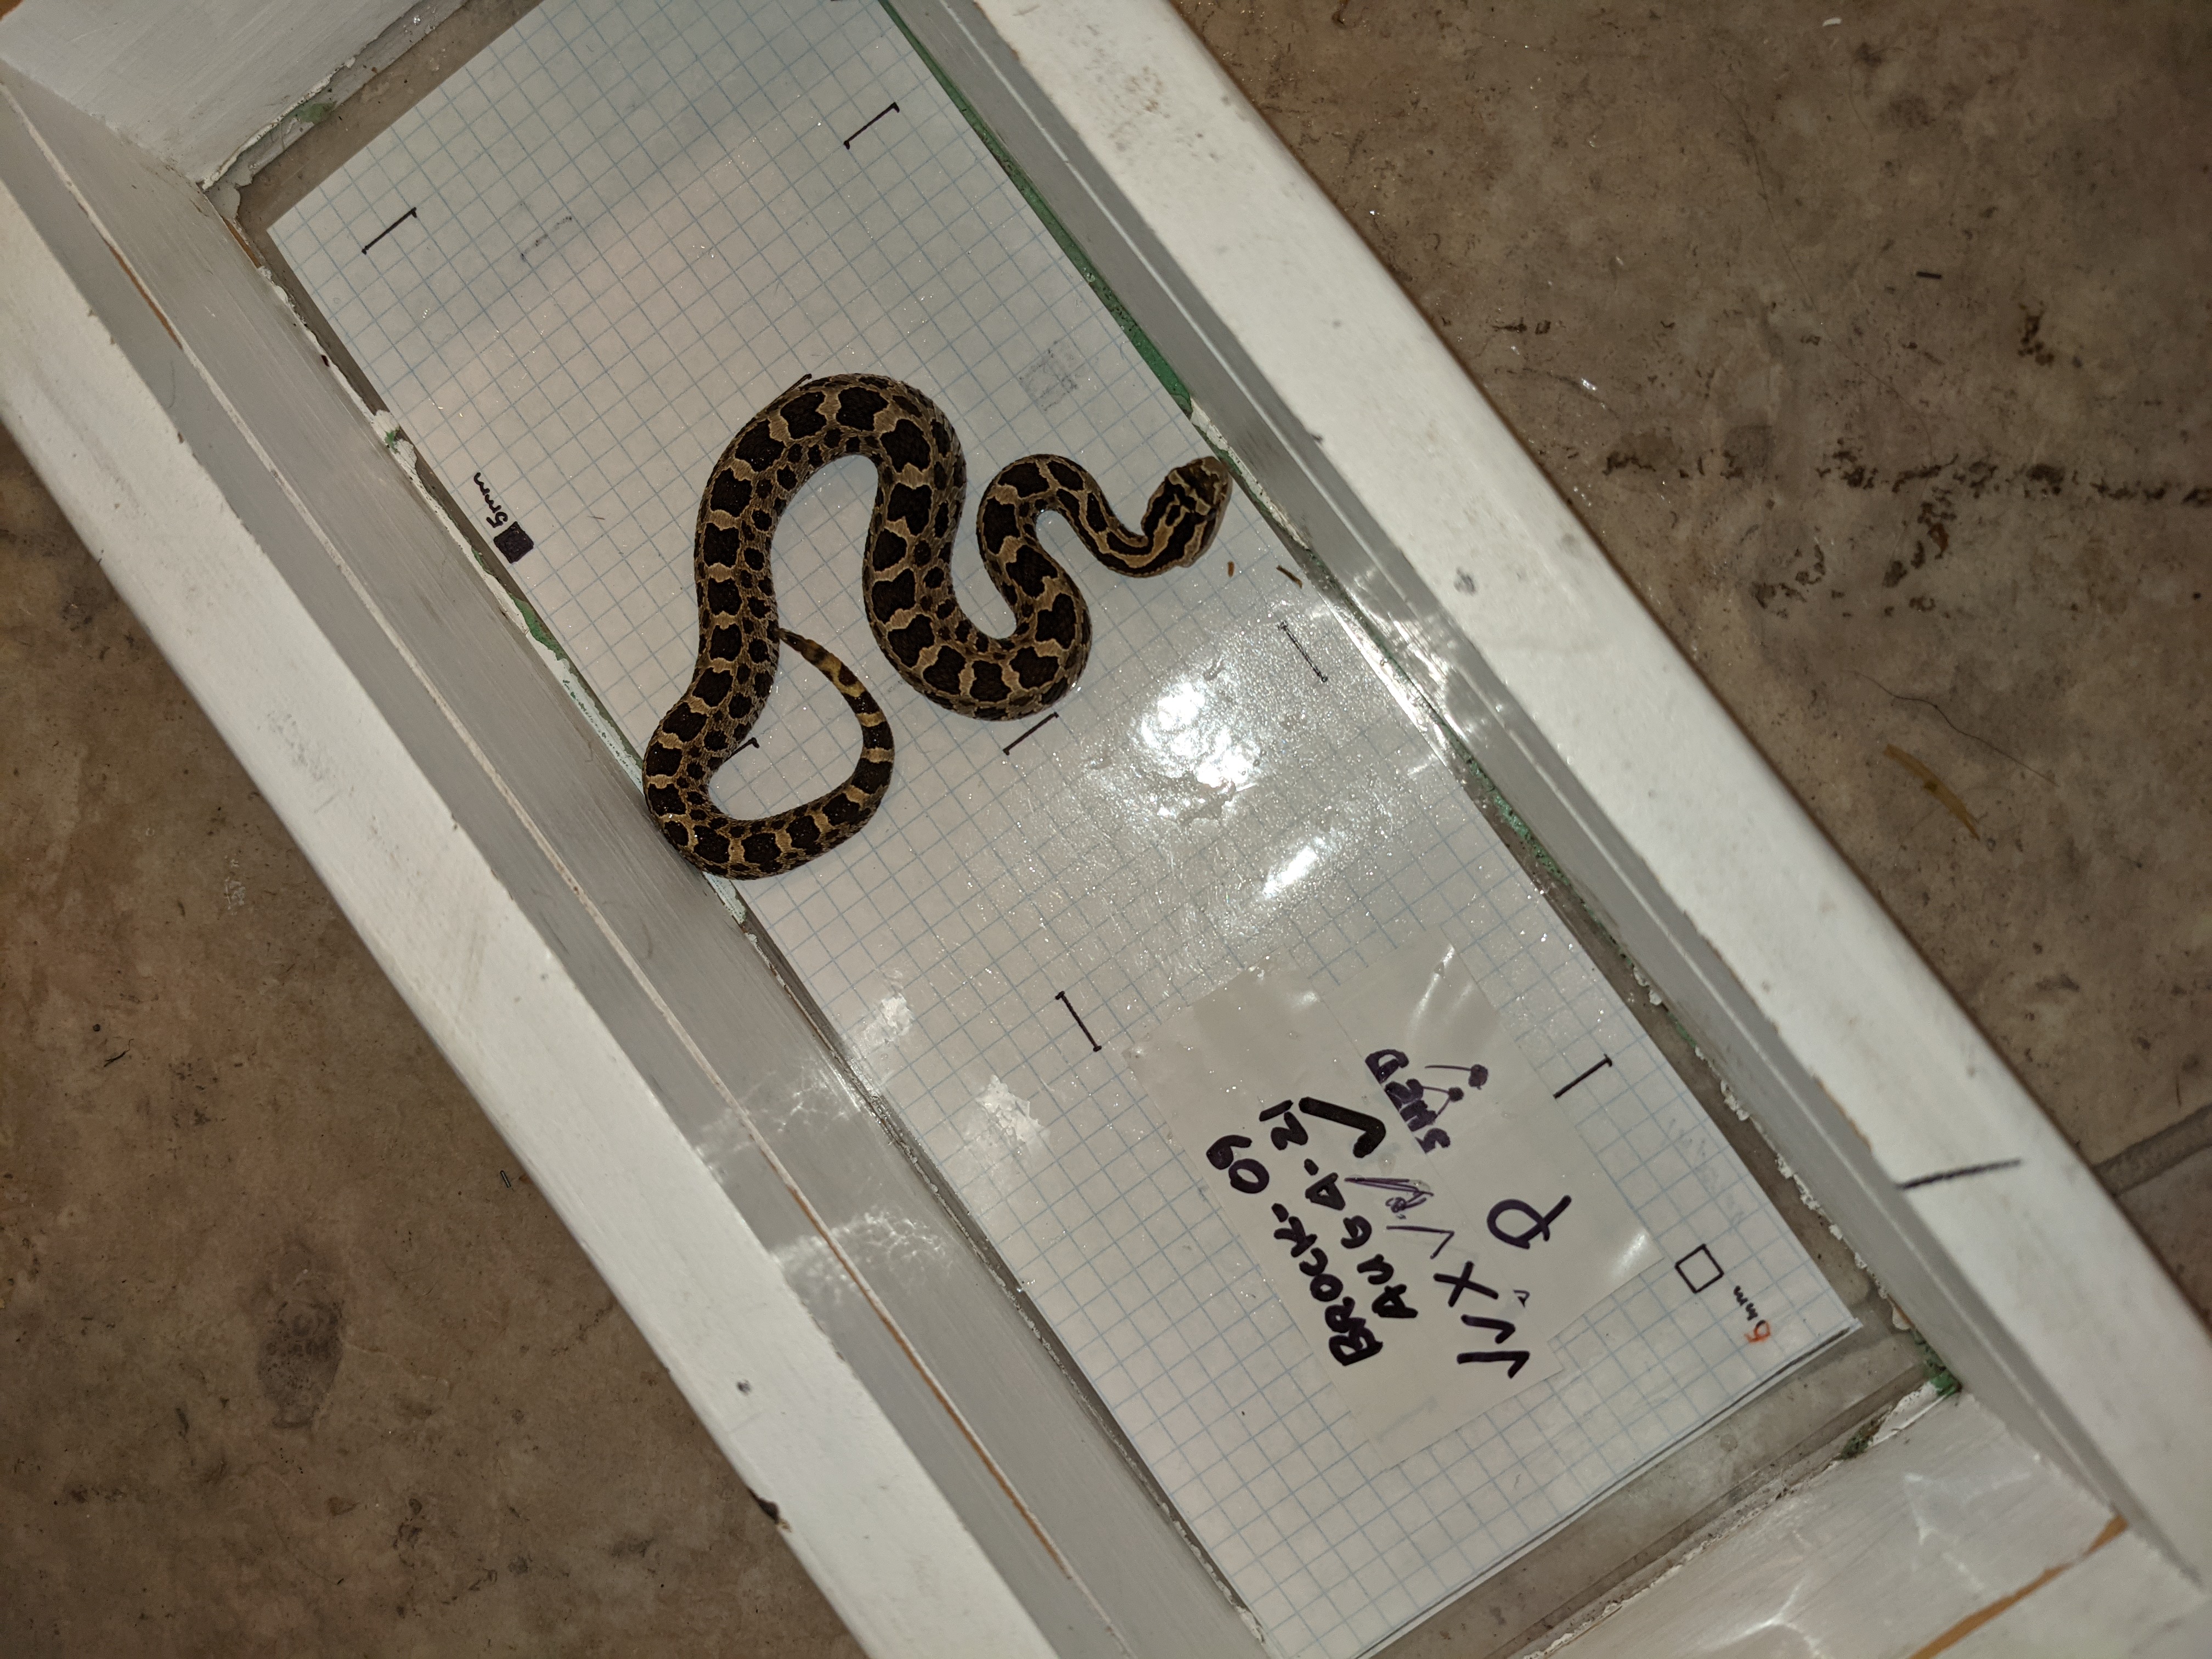 5mm
BROCK-09
AUG 4-21 ✓
✓✓X✓✓ SHED
P
5mm